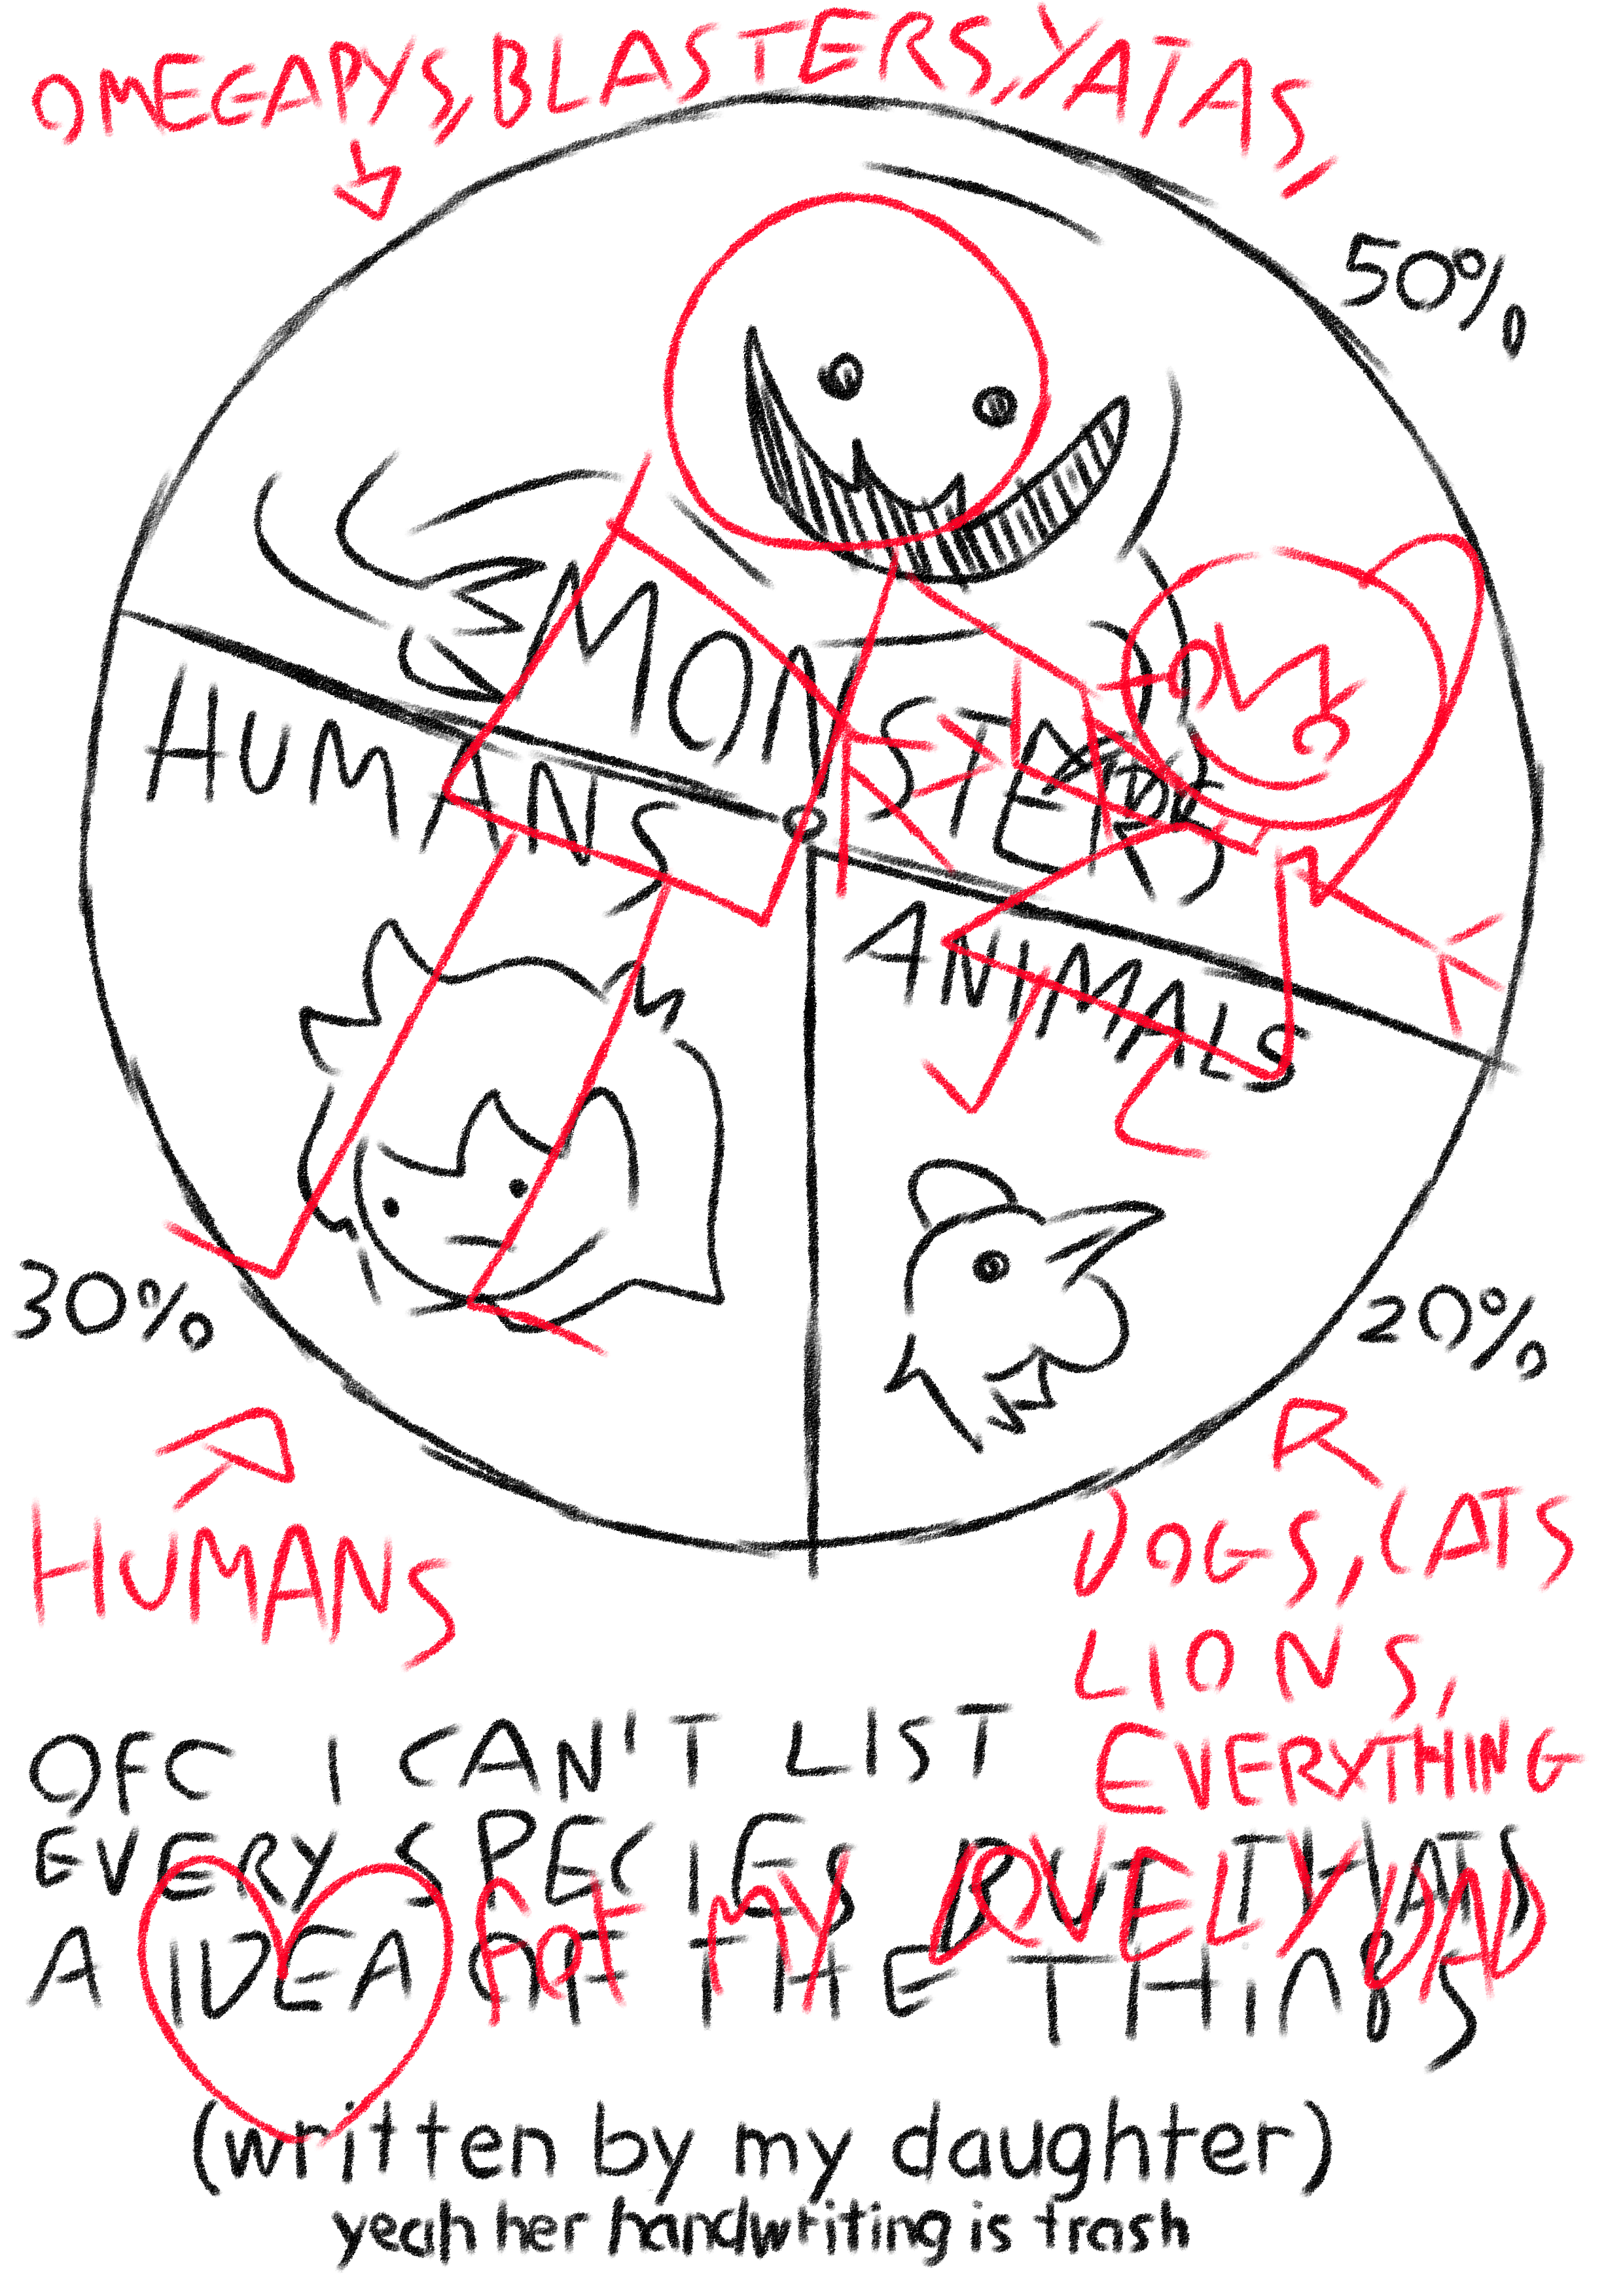 OMEGAPYS, BLASTERS, YATAS,
50%
MONSTERS
HUMANS
ANIMALS
30%
20%
HUMANS
DOGS, CATS
LIONS,
EVERYTHING
OFC I CAN'T LIST
EVERY SPECIES BUT THATS
A IDEA OF THE THINGS
FOT MY LOVELY DAD
(written by my daughter)
yeah her handwriting is trash